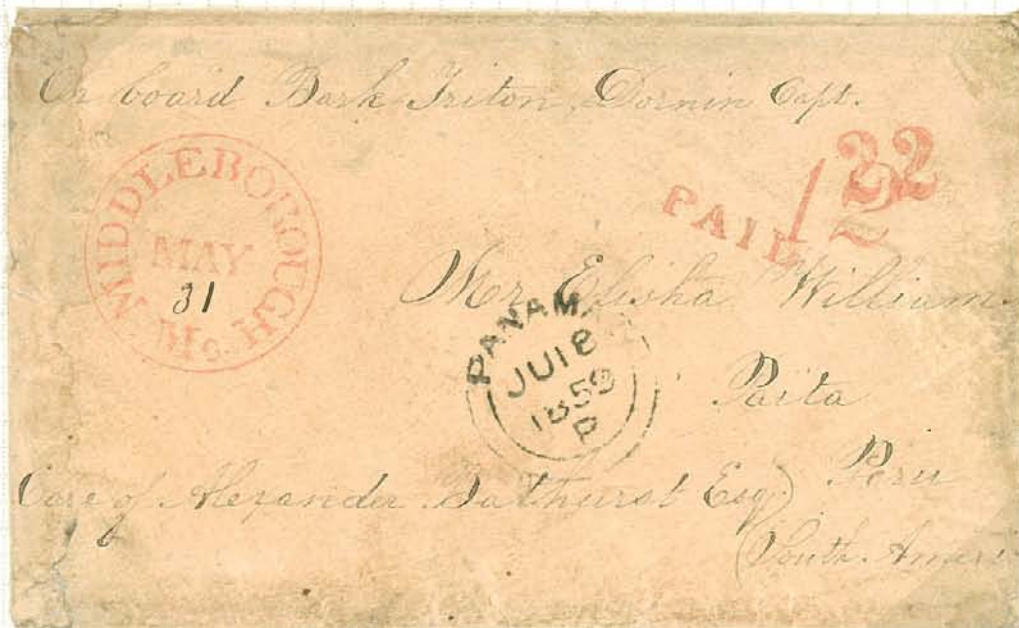 On board Bark Triton, Dornin Capt.
MIDDLEBOROUGH Ms.
MAY
31
PAID
12
22
Mr Elisha William
PANAMA
JU 18
1859
P
Paita
Peru
Care of Alexander Bathurst Esq)
(South Ameri